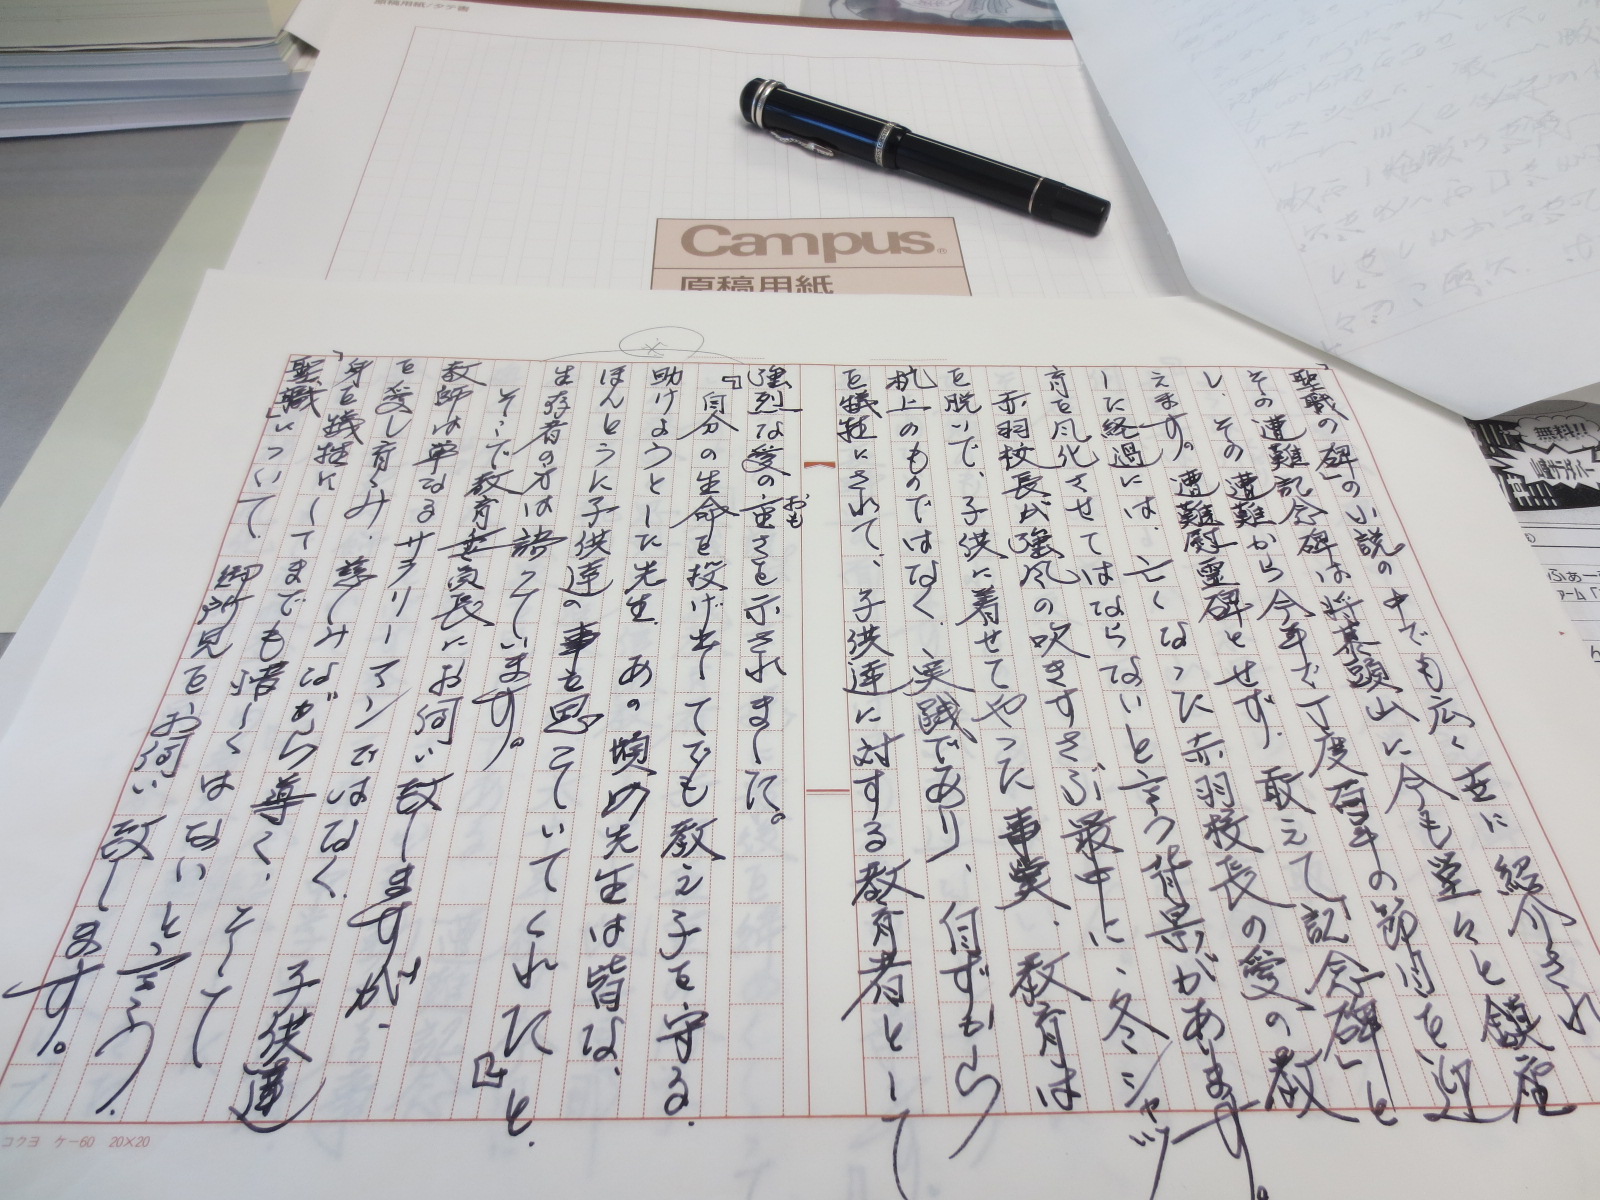 原稿用紙/タテ書
Campus
原稿用紙
「聖職の碑」の小説の中でも広く世に紹介され
その遭難記念碑は将棊頭山に今も堂々と鎮座
し、その遭難から今年で丁度百年の節目を迎
えます。遭難慰霊碑とせず、敢えて「記念碑」と
した経過には、亡くなった赤羽校長の愛の教
育を風化させてはならないと言う背景があります。
赤羽校長が強風の吹きすさぶ最中に、冬シャツ
を脱いで、子供に着せてやった事実、教育は
机上のものではなく、実践であり、自ずから
を犠牲にされて、子供達に対する教育者として
強烈な愛の重さを示されました。
おも
『自分の生命を投げ出してでも教え子を守る、
助けようとした先生、あの頃の先生は皆な、
ほんとうに子供達の事を思っていてくれた』と、
生存者の方は語っています。
そこで教育委員長にお伺い致しますが、
教師は単なるサラリーマンではなく、
を愛し育くみ、慈しみながら導く、そして
身を犠牲にしてまでも惜しくはないと言う、
「聖職」について、御所見をお伺い致します。
子供達
コクヨ ケー60 20×20
無料!!